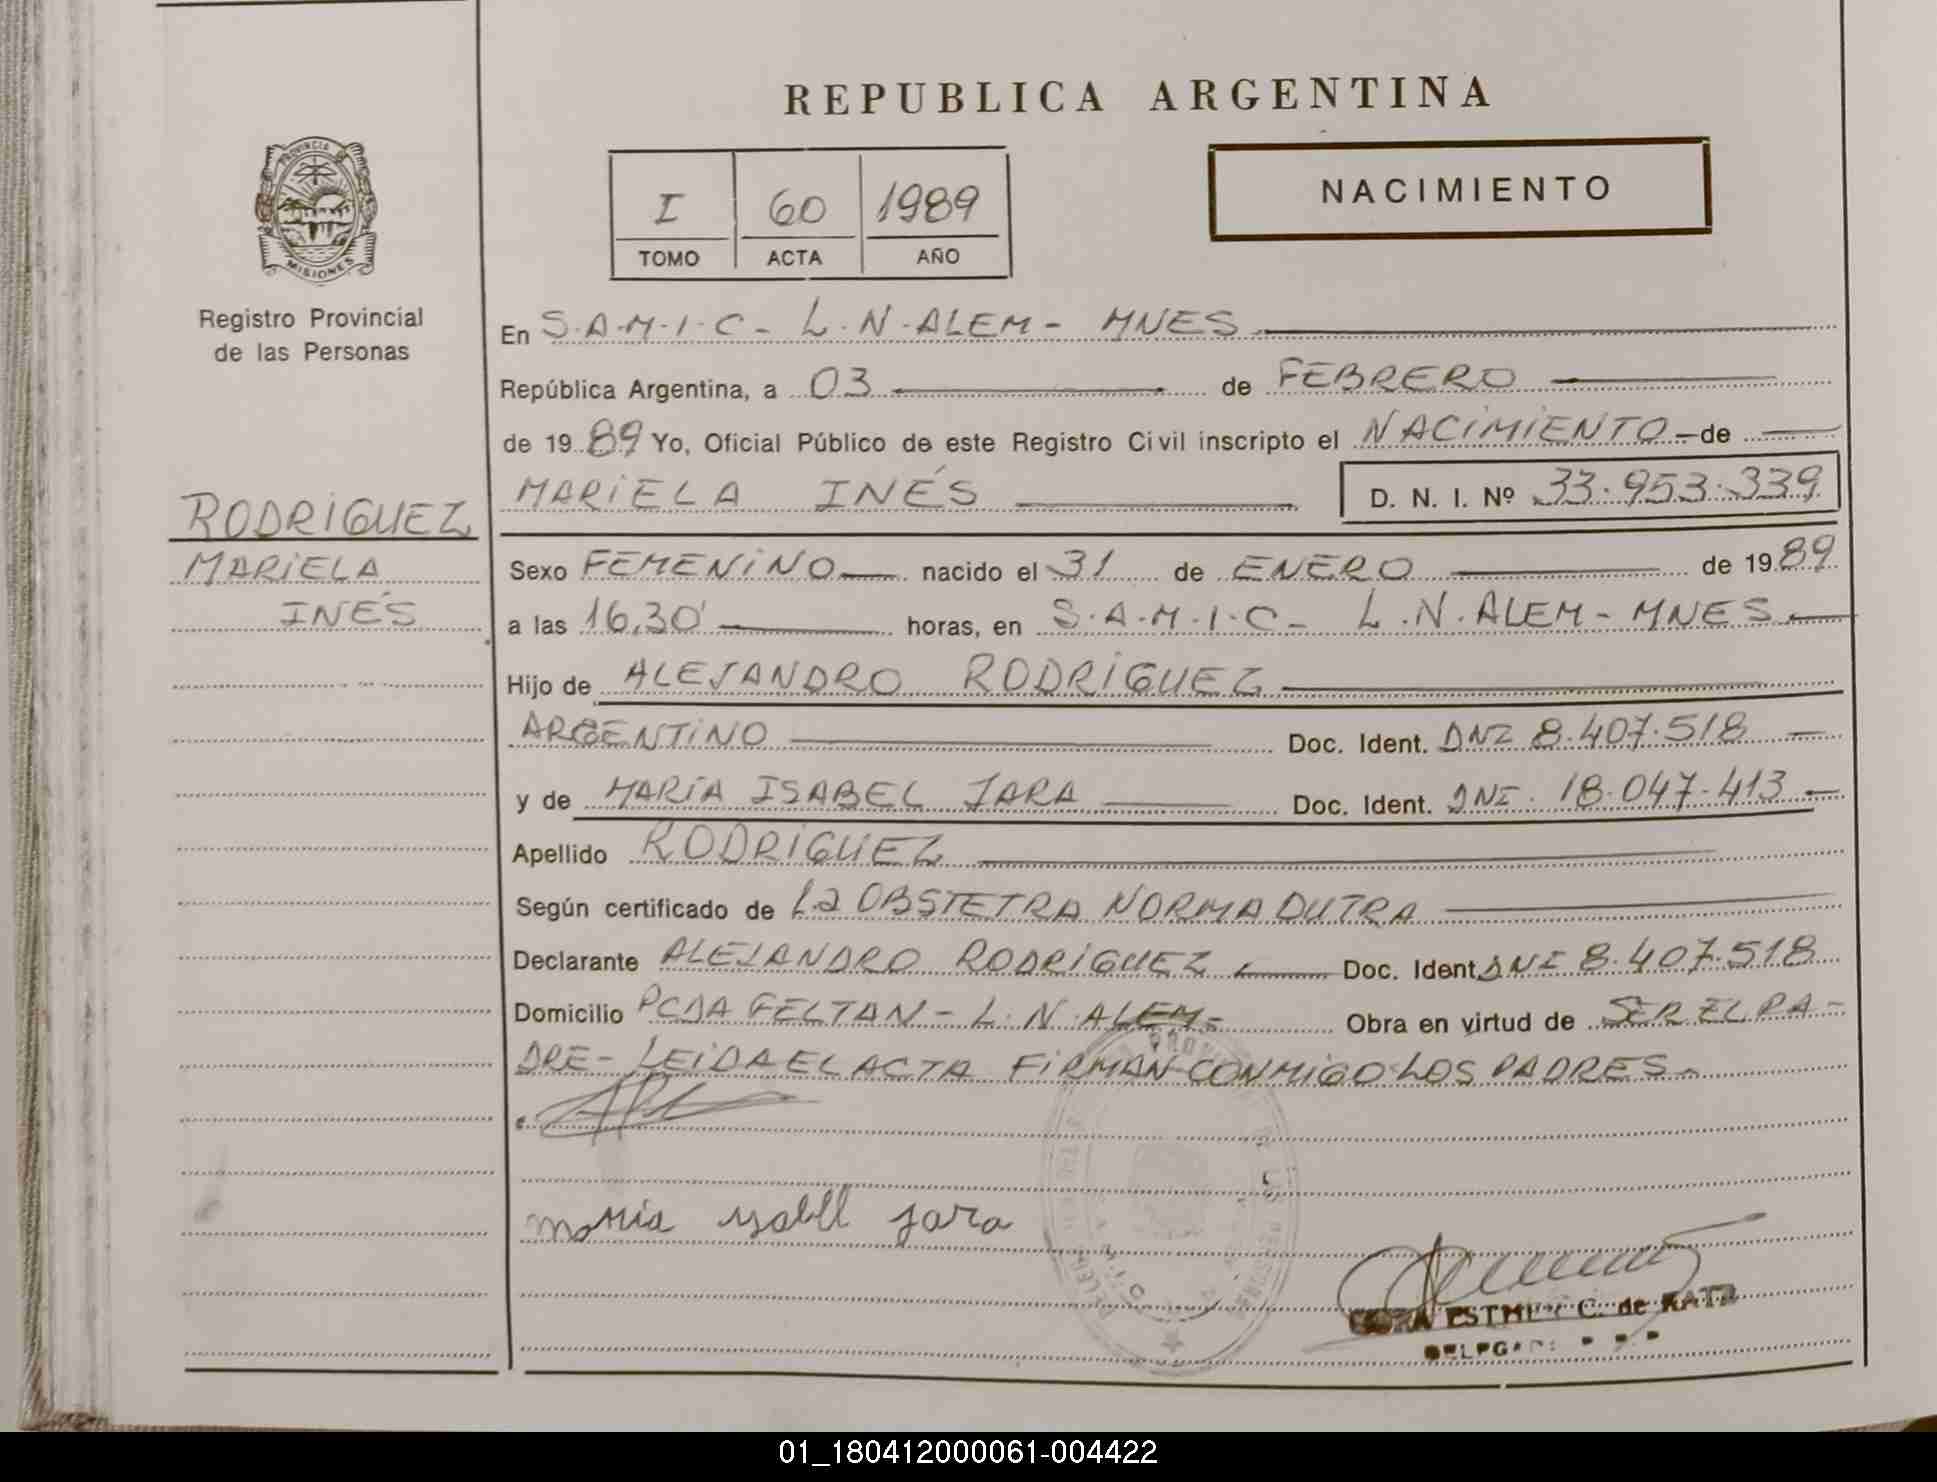 REPUBLICA ARGENTINA
PROVINCIA DE
MISIONES
Registro Provincial
de las Personas
I 60 1989
TOMO ACTA AÑO
NACIMIENTO
En S.A.M.I.C- L.N.ALEM- MNES
República Argentina, a 03 de FEBRERO
de 1989 Yo, Oficial Público de este Registro Civil inscripto el NACIMIENTO de
MARIELA INÉS D. N. I. Nº 33.953.339
RODRIGUEZ
MARIELA
INÉS
Sexo FEMENINO nacido el 31 de ENERO de 1989
a las 16,30' horas, en S.A.M.I.C- L.N.ALEM- MNES
Hijo de ALEJANDRO RODRIGUEZ
ARGENTINO Doc. Ident. DNI 8.407.518
y de MARÍA ISABEL JARA Doc. Ident. DNI. 18.047.413
Apellido RODRIGUEZ
Según certificado de La OBSTETRA NORMA DUTRA
Declarante ALEJANDRO RODRIGUEZ Doc. Ident. DNI 8.407.518
Domicilio PCDA FELTAN- L.N.ALEM- Obra en virtud de SER EL PA-
DRE- LEIDA EL ACTA FIRMAN CONMIGO LOS PADRES-
maria ysabll jara
C. de KATZ
01_180412000061-004422